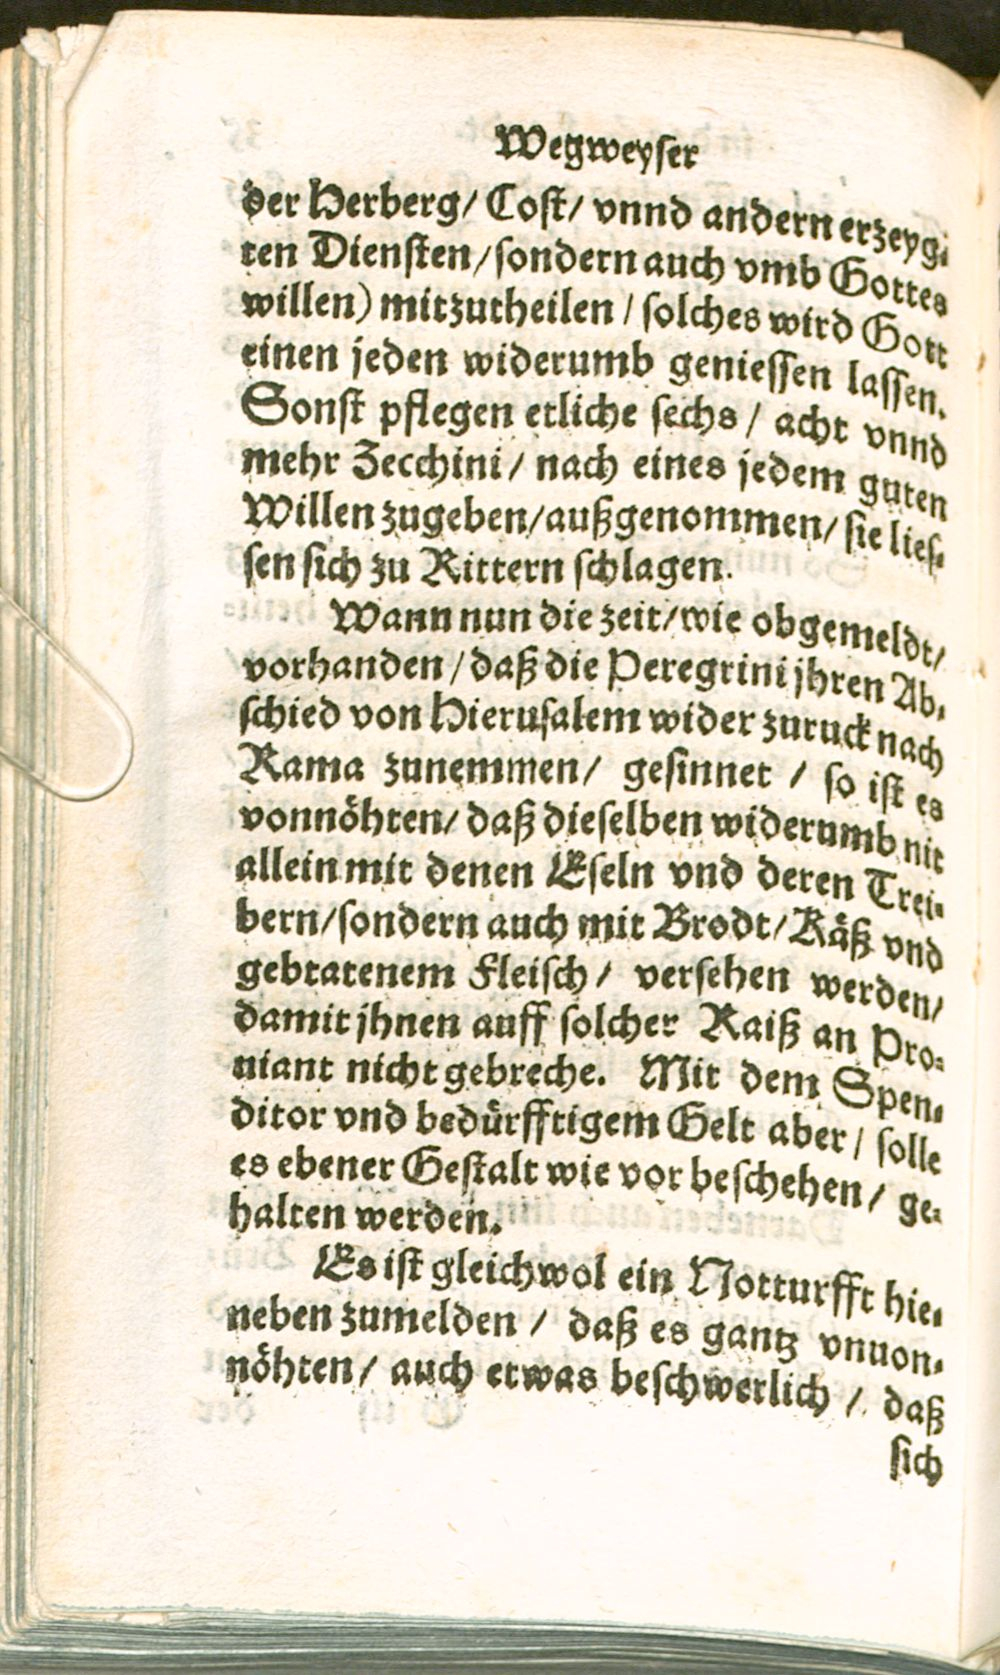 Wegweyser
der Herberg/ Cost/ vnnd andern erzeyg-
ten Diensten/sondern auch vmb Gottes
willen) mitzutheilen / solches wird Gott
einen jeden widerumb geniessen lassen.
Sonst pflegen etliche sechs / acht vnnd
mehr Zecchini / nach eines jedem guten
Willen zugeben/außgenommen/ sie lies-
sen sich zu Rittern schlagen.
Wann nun die zeit/wie obgemeldt/
vorhanden / daß die Peregrini jhren Ab-
schied von Hierusalem wider zuruck nach
Rama zunemmen/ gesinnet / so ist es
vonnöhten/ daß dieselben widerumb nit
allein mit denen Eseln vnd deren Trei-
bern/sondern auch mit Brodt/Käß vnd
gebratenem Fleisch / versehen werden/
damit jhnen auff solcher Raiß an Pro-
uiant nicht gebreche. Mit dem Spen-
ditor vnd bedürfftigem Gelt aber / solle
es ebener Gestalt wie vor beschehen / ge-
halten werden.
Es ist gleichwol ein Notturfft hie-
neben zumelden / daß es gantz vnuon-
nöhten / auch etwas beschwerlich / daß
sich